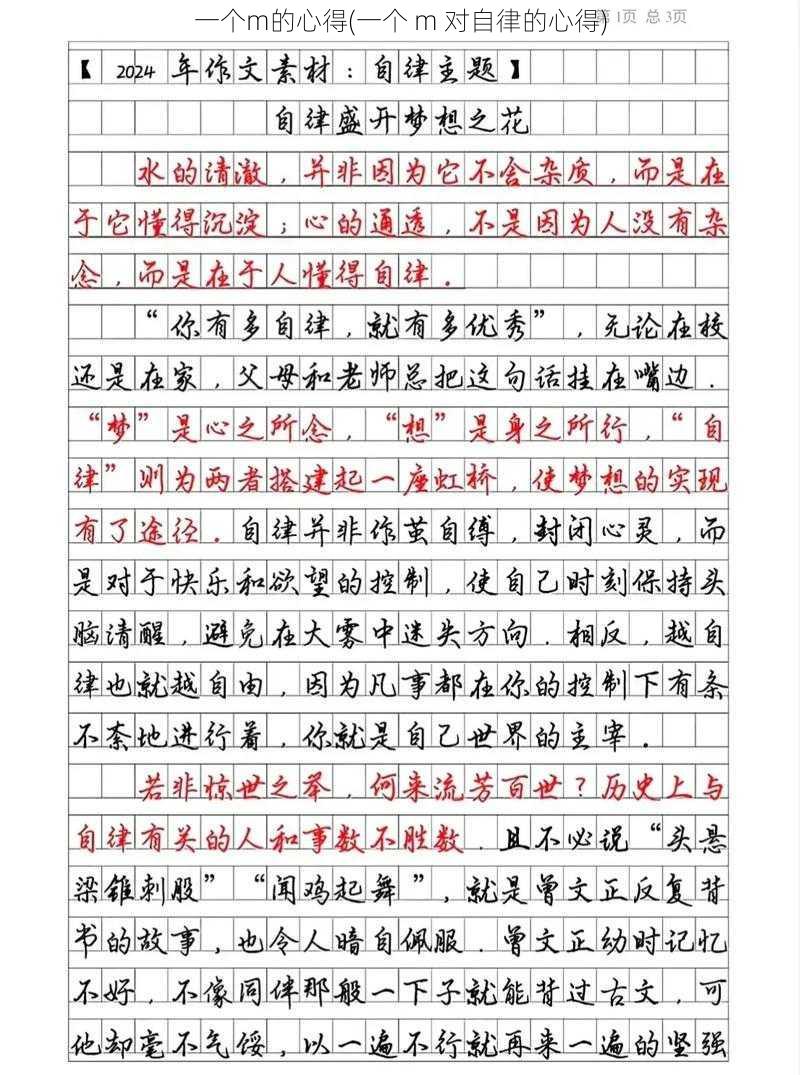 一个m的心得(一个 m 对自律的心得)
第1页 总3页
【2024年作文素材：自律主题】
自律盛开梦想之花
水的清澈，并非因为它不含杂质，而是在
于它懂得沉淀；心的通透，不是因为人没有杂
念，而是在于人懂得自律．
“你有多自律，就有多优秀”，无论在校
还是在家，父母和老师总把这句话挂在嘴边．
“梦”是心之所念，“想”是身之所行，“自
律”则为两者搭建起一座虹桥，使梦想的实现
有了途径．自律并非作茧自缚，封闭心灵，而
是对于快乐和欲望的控制，使自己时刻保持头
脑清醒，避免在大雾中迷失方向．相反，越自
律也就越自由，因为凡事都在你的控制下有条
不紊地进行着，你就是自己世界的主宰．
若非惊世之举，何来流芳百世？历史上与
自律有关的人和事数不胜数．且不必说“头悬
梁锥刺股”“闻鸡起舞”，就是曾文正反复背
书的故事，也令人暗自佩服．曾文正幼时记忆
不好，不像同伴那般一下子就能背过古文，可
他却毫不气馁，以一遍不行就再来一遍的坚强